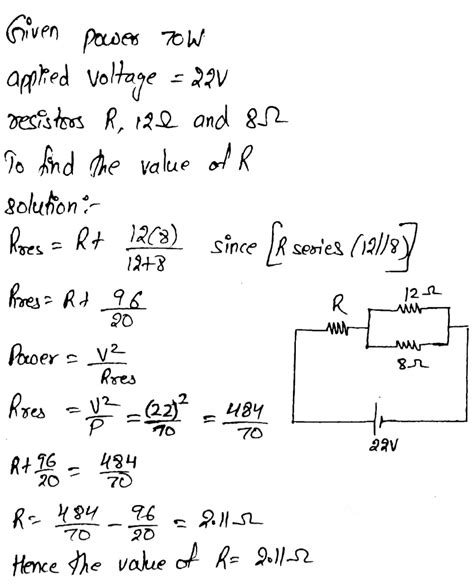 Given power 70W
applied voltage = 22V
resistors R, 12Ω and 8Ω
To find the value of R
solution:-
Rres = R+ 12(8)/12+8 since [R series (12//8)]
Rres = R+ 96/20
Power = V²/Rres
Rres = V²/P = (22)²/70 = 484/70
R+ 96/20 = 484/70
R = 484/70 - 96/20 = 2.11Ω
Hence the value of R = 2.11Ω
R
12Ω
8Ω
22V